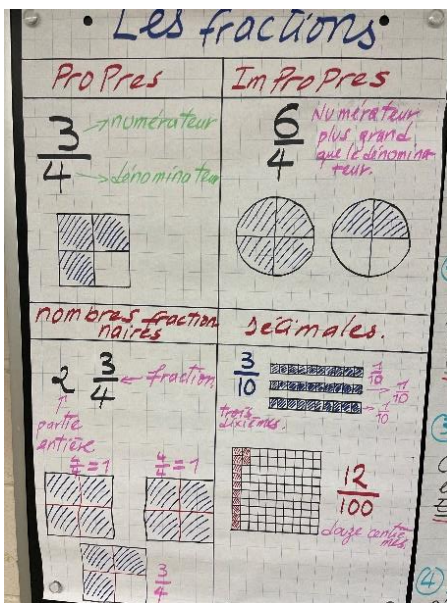 Les fractions
Propres
3
4
numérateur
dénominateur
Impropres
6
4
Numérateur
plus grand
que le dénomina-
teur.
nombres fraction
naires
2 3
4
fraction
partie
entière
4/4 = 1
4/4 = 1
3
4
décimales.
3
10
trois
dixièmes.
1
10
1
10
1
10
12
100
douze centiè-
mes.
3
4